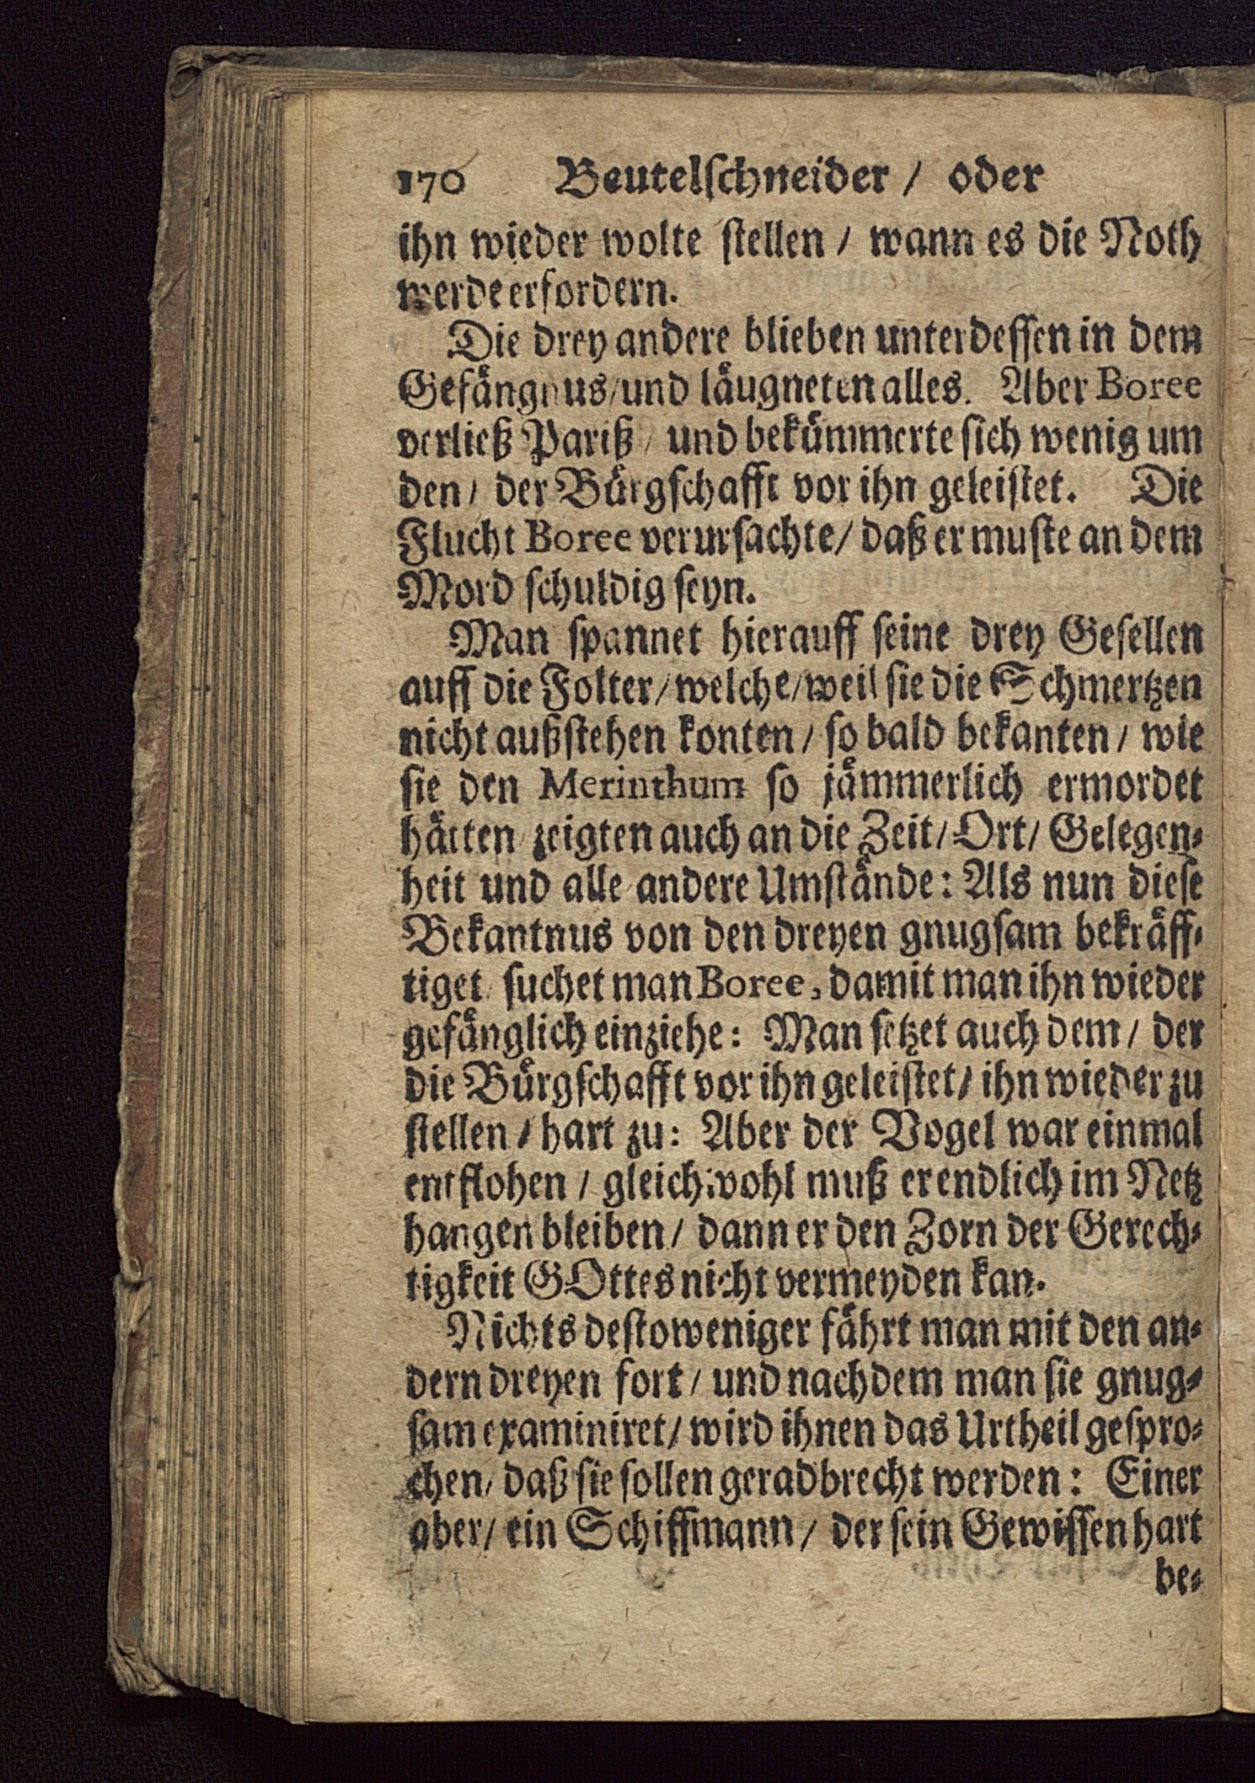 170 Beutelschneider / oder
ihn wieder wolte stellen / wann es die Noth
werde erfordern.
Die drey andere blieben unterdessen in dem
Gefängnus / und läugneten alles. Aber Boree
verließ Pariß / und bekümmerte sich wenig um
den / der Bürgschafft vor ihn geleistet. Die
Flucht Boree verursachte / daß er muste an dem
Mord schuldig seyn.
Man spannet hierauff seine drey Gesellen
auff die Folter / welche / weil sie die Schmertzen
nicht außstehen konten / so bald bekanten / wie
sie den Merinthum so jämmerlich ermordet
hätten / zeigten auch an die Zeit / Ort / Gelegen-
heit und alle andere Umstände: Als nun diese
Bekantnus von den dreyen gnugsam bekräff-
tiget / suchet man Boree, damit man ihn wieder
gefänglich einziehe: Man setzet auch dem / der
die Bürgschafft vor ihn geleistet / ihn wieder zu
stellen / hart zu: Aber der Vogel war einmal
entflohen / gleichwohl muß er endlich im Netz
hangen bleiben / dann er den Zorn der Gerech-
tigkeit GOttes nicht vermeyden kan.
Nichts destoweniger fährt man mit den an-
dern dreyen fort / und nachdem man sie gnug-
sam examiniret / wird ihnen das Urtheil gespro-
chen / daß sie sollen geradbrecht werden: Einer
aber / ein Schiffmann / der sein Gewissen hart
be-